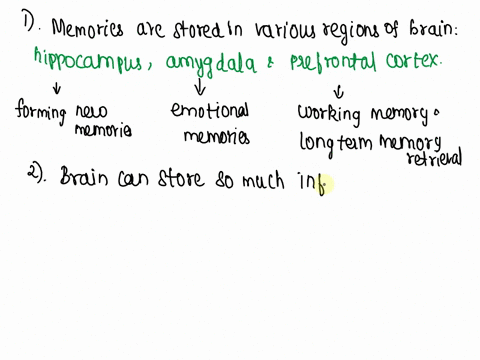 1). Memories are stored in various regions of brain:
hippocampus, amygdala & prefrontal cortex.
forming new memories
emotional memories
working memory &
long term memory retrieval
2). Brain can store so much inf